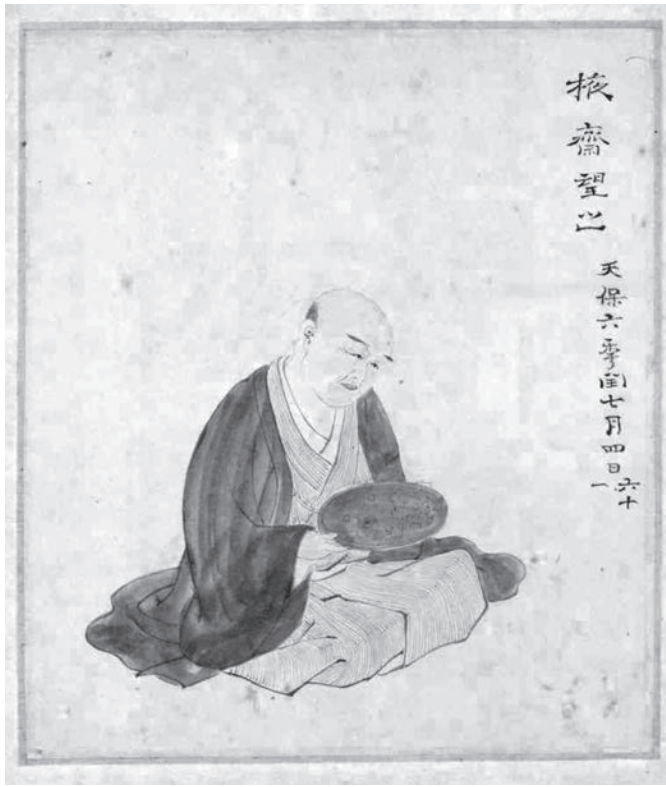 掖齋望之
天保六季閏七月四日
六十
一